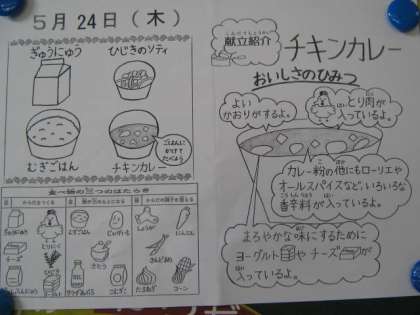 5月24日(木)
ぎゅうにゅう
ひじきのソティ
むぎごはん
チキンカレー
ごはんに
かけて
たべよう
食べ物の三つのはたらき
ぎゅうにゅう
とりにく
チーズ
ひじき
むぎごはん
じゃがいも
さとう
こむぎこ
しょうが
にんじん
さんどまめ
たまねぎ
コーン
献立紹介
チキンカレー
おいしさのひみつ
よい
かおりがするよ。
とり肉が
入っているよ。
カレー粉の他にもローリエや
オールスパイスなど、いろいろな
香辛料が入っているよ。
まろやかな味にするために
ヨーグルトやチーズが
入っているよ。